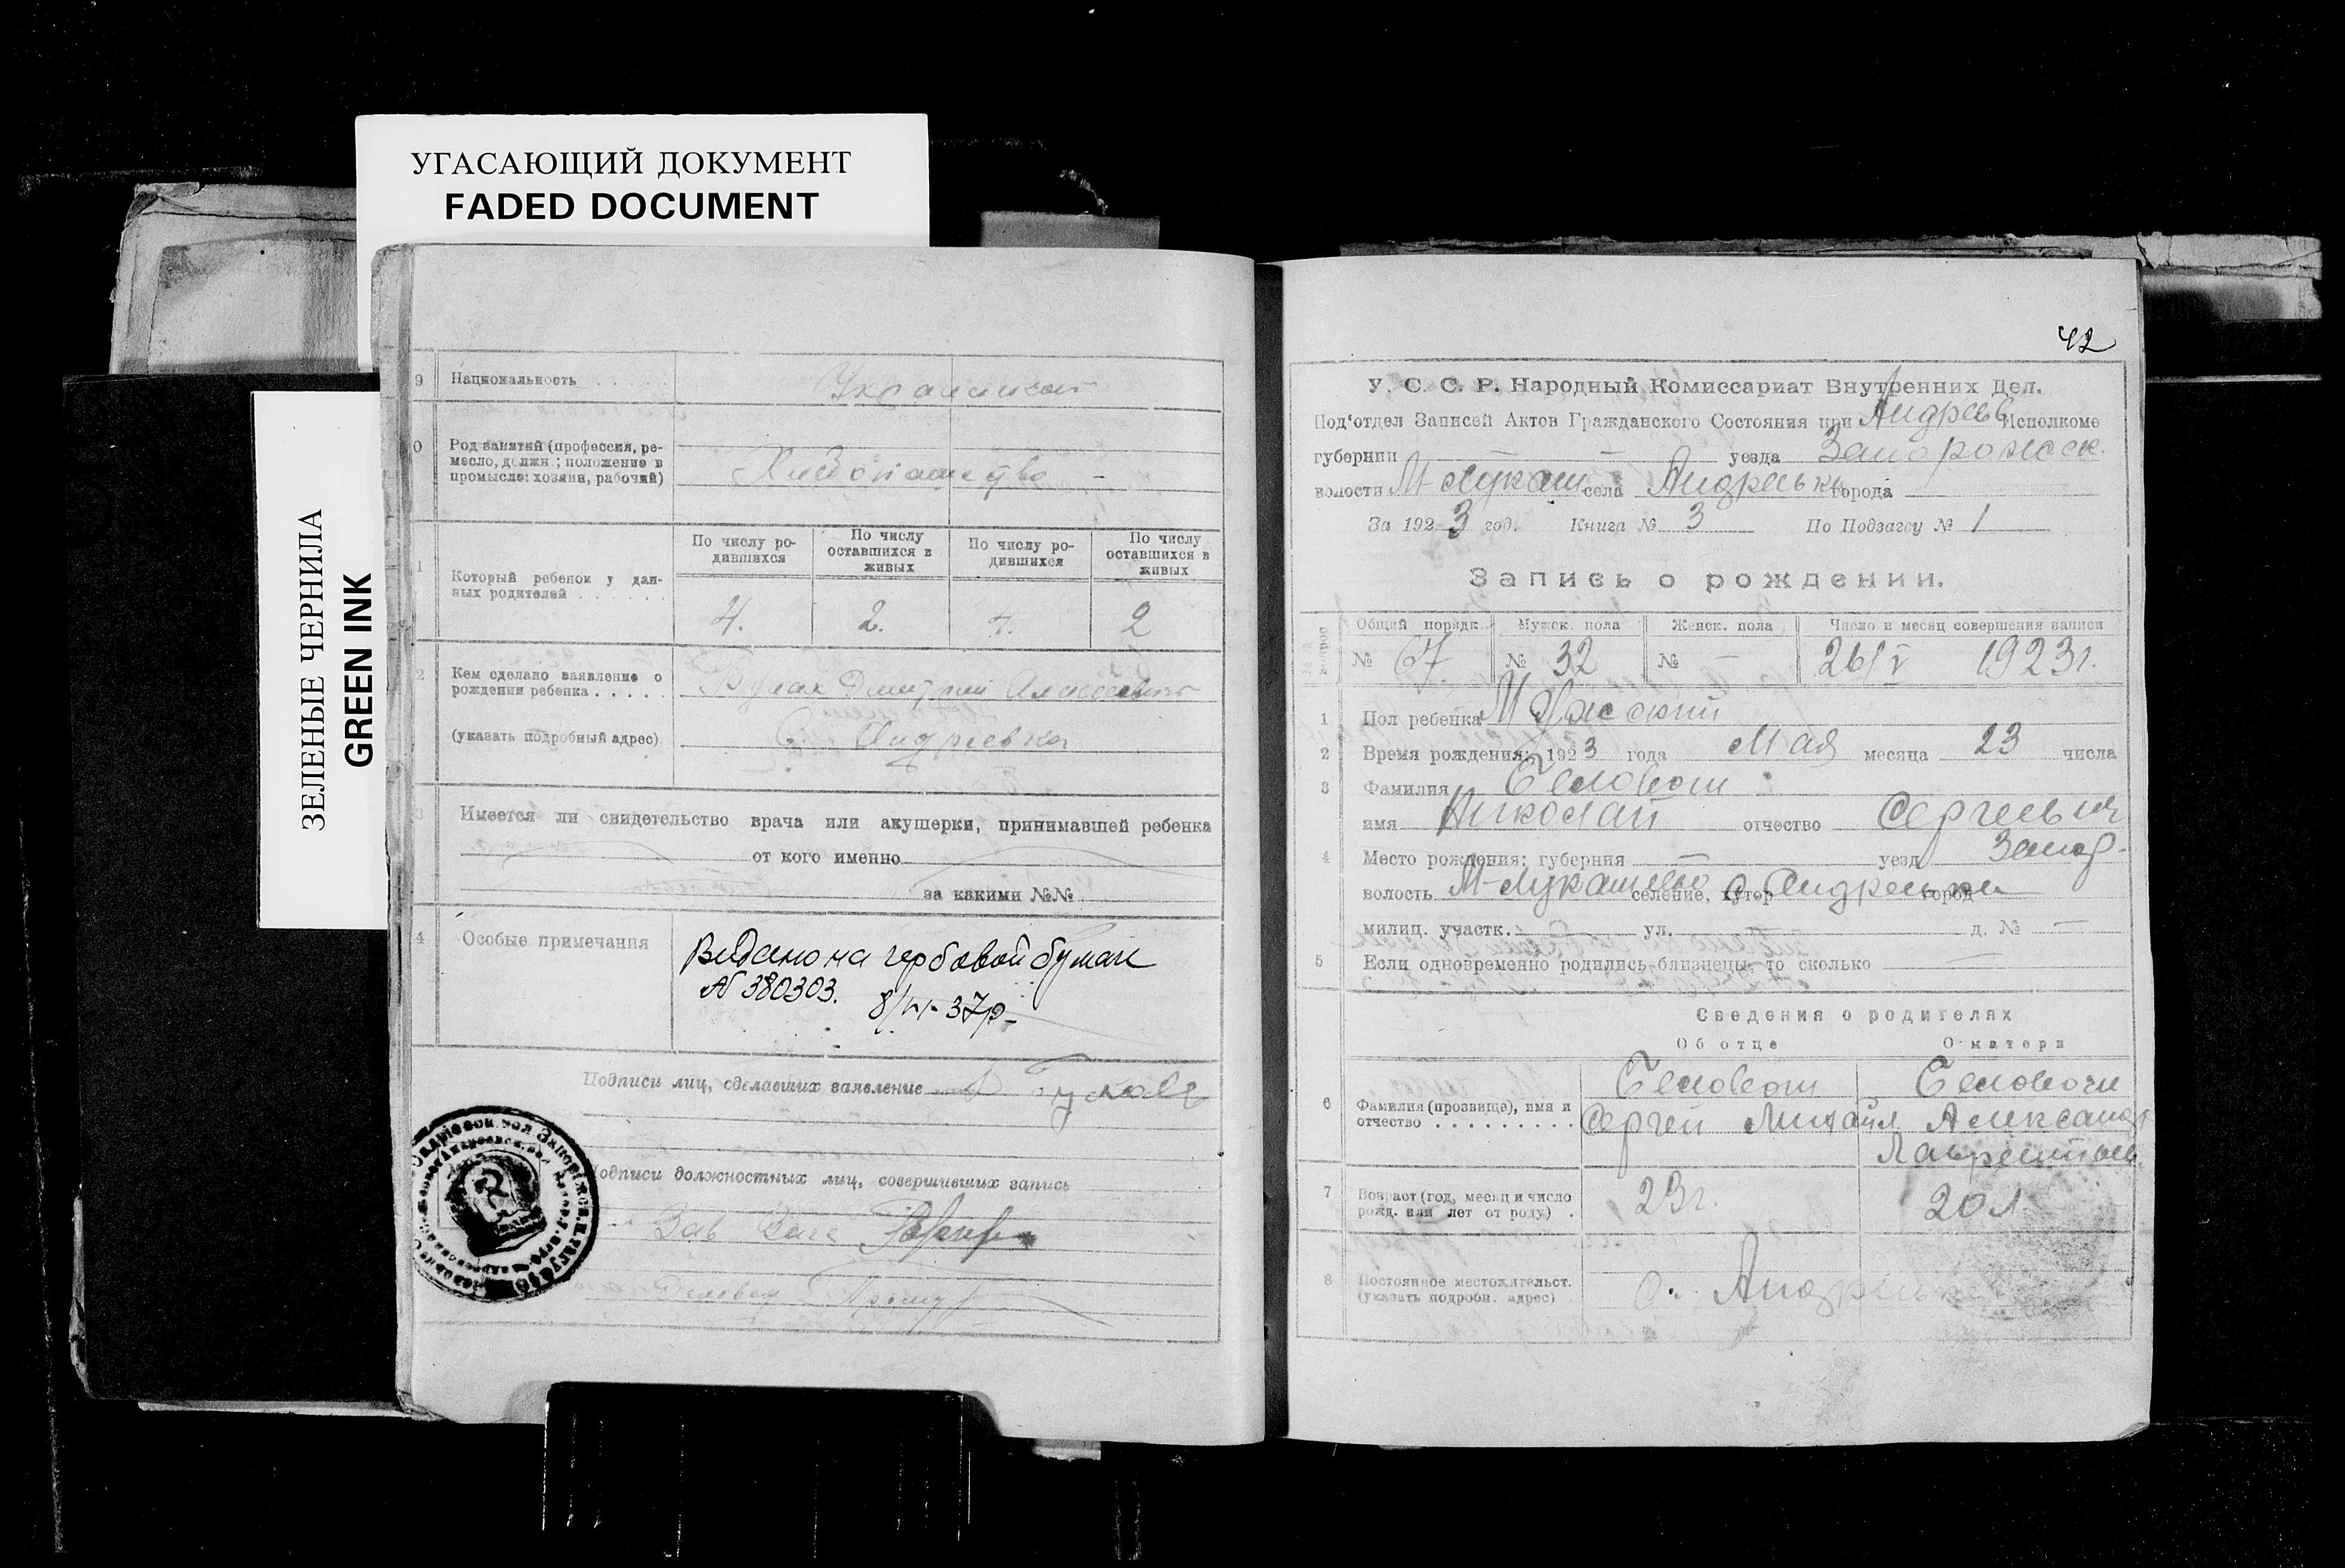 УГАСАЮЩИЙ ДОКУМЕНТ
FADED DOCUMENT
ЗЕЛЕНЫЕ ЧЕРНИЛА
GREEN INK
9 Национальность . . . . .
0 Род занятий (профессия, ре-
месло, должн.; положение в
промысле: хозяин, рабочий)
Хлебопашество -
По числу ро-
дившихся
По числу
оставшихся в
живых
По числу ро-
дившихся
По числу
оставшихся в
живых
1 Который ребенок у дан-
ных родителей . . . . . . .
4. 2. 4. 2
2 Кем сделано заявление о
рождении ребенка . . . . .
Дмитрий Алексеевич
(указать подробный адрес)
с. Андреевка
3 Имеется ли свидетельство врача или акушерки, принимавшей ребенка
от кого именно
за какими №№
4 Особые примечания
Видано на гербовой бумаге
№ 380303.
Подписи лиц, сделавших заявление
Подписи должностных лиц, совершивших запись
Зав Загс
Деловод
42
У. С. С. Р. Народный Комиссариат Внутренних Дел.
Под'отдел Записей Актов Гражданского Состояния при Андреев Исполкоме
губернии — уезда Запорожск.
волости М-Лукаш села Андреевк города
За 1923 год. Книга № 3 По Подзагсу № 1
Запись о рождении.
Общий порядк. Мужск. пола Женск. пола Число и месяц совершения записи
№ 67 № 32 № — 26/V 1923г.
1 Пол ребенка Мужской
2 Время рождения: 1923 года Мая месяца 23 числа
3 Фамилия Беловол
имя Николай отчество Сергеевич
4 Место рождения: губерния — уезд Запор.
волость М-Лукашево селение, хутор с Андреевка город
милиц. участк. ул. д. № —
5 Если одновременно родились близнецы, то сколько
Сведения о родителях
Об отце О матери
6 Фамилия (прозвище), имя и
отчество . . . . . . . . .
Сергей Михайл Александр
Лаврентьев
7 Возраст (год, месяц и число
рожд. или лет от роду) .
23г. 20 л.
8 Постоянное местожительст.
(указать подробн. адрес)
с. Андреевка